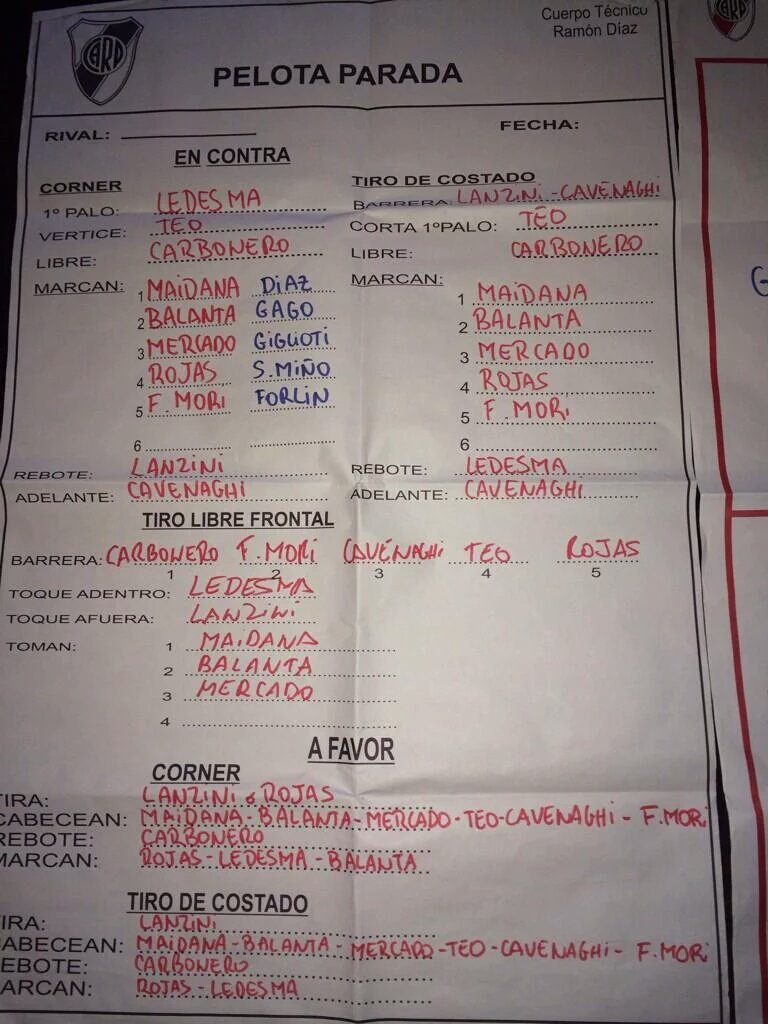 CARP
Cuerpo Técnico
Ramón Díaz
PELOTA PARADA
RIVAL:
FECHA:
EN CONTRA
CORNER
1º PALO: LEDESMA
VERTICE: TEO
LIBRE: CARBONERO
MARCAN: 1 MAIDANA DIAZ
2 BALANTA GAGO
3 MERCADO GIGLIOTI
4 ROJAS S.MIÑO
5 F. MORI FORLIN
6
REBOTE: LANZINI
ADELANTE: CAVENAGHI
TIRO DE COSTADO
BARRERA: LANZINI - CAVENAGHI
CORTA 1ºPALO: TEO
LIBRE: CARBONERO
MARCAN:
1 MAIDANA
2 BALANTA
3 MERCADO
4 ROJAS
5 F. MORI
6
REBOTE: LEDESMA
ADELANTE: CAVENAGHI
TIRO LIBRE FRONTAL
BARRERA: CARBONERO F. MORI CAVENAGHI TEO ROJAS
1 2 3 4 5
TOQUE ADENTRO: LEDESMA
TOQUE AFUERA: LANZINI
TOMAN: 1 MAIDANA
2 BALANTA
3 MERCADO
4
A FAVOR
CORNER
TIRA: LANZINI o ROJAS
CABECEAN: MAIDANA - BALANTA - MERCADO - TEO - CAVENAGHI - F. MORI
REBOTE: CARBONERO
MARCAN: ROJAS - LEDESMA - BALANTA
TIRO DE COSTADO
IRA: LANZINI
ABECEAN: MAIDANA - BALANTA - MERCADO - TEO - CAVENAGHI - F. MORI
EBOTE: CARBONERO
ARCAN: ROJAS - LEDESMA